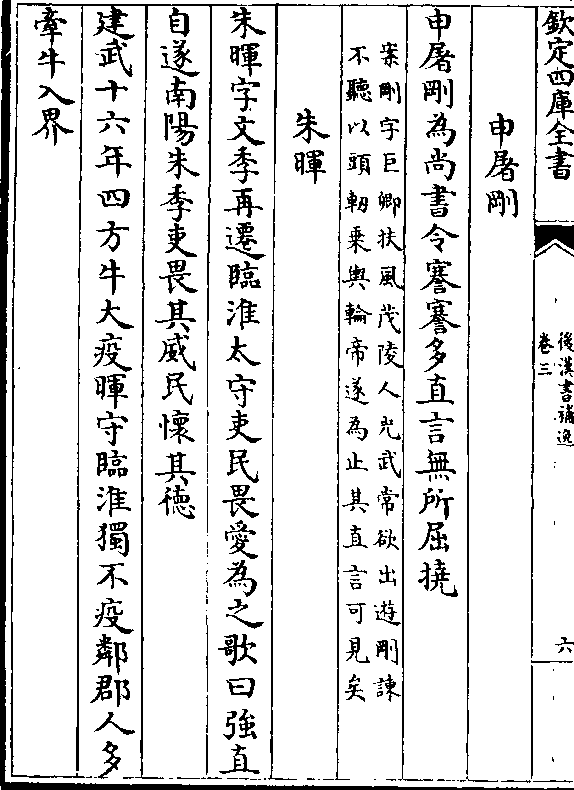 欽定四庫全書
後漢書補逸
卷三
六
申屠剛
申屠剛為尚書令謇謇多直言無所屈撓
案剛字巨卿扶風茂陵人光武常欲出遊剛諫
不聽以頭軔乗輿輪帝遂為止其直言可見矣
朱暉
朱暉字文季再遷臨淮太守吏民畏愛為之歌曰強直
自遂南陽朱季吏畏其威民懷其德
建武十六年四方牛大疫暉守臨淮獨不疫鄰郡人多
牽牛入界